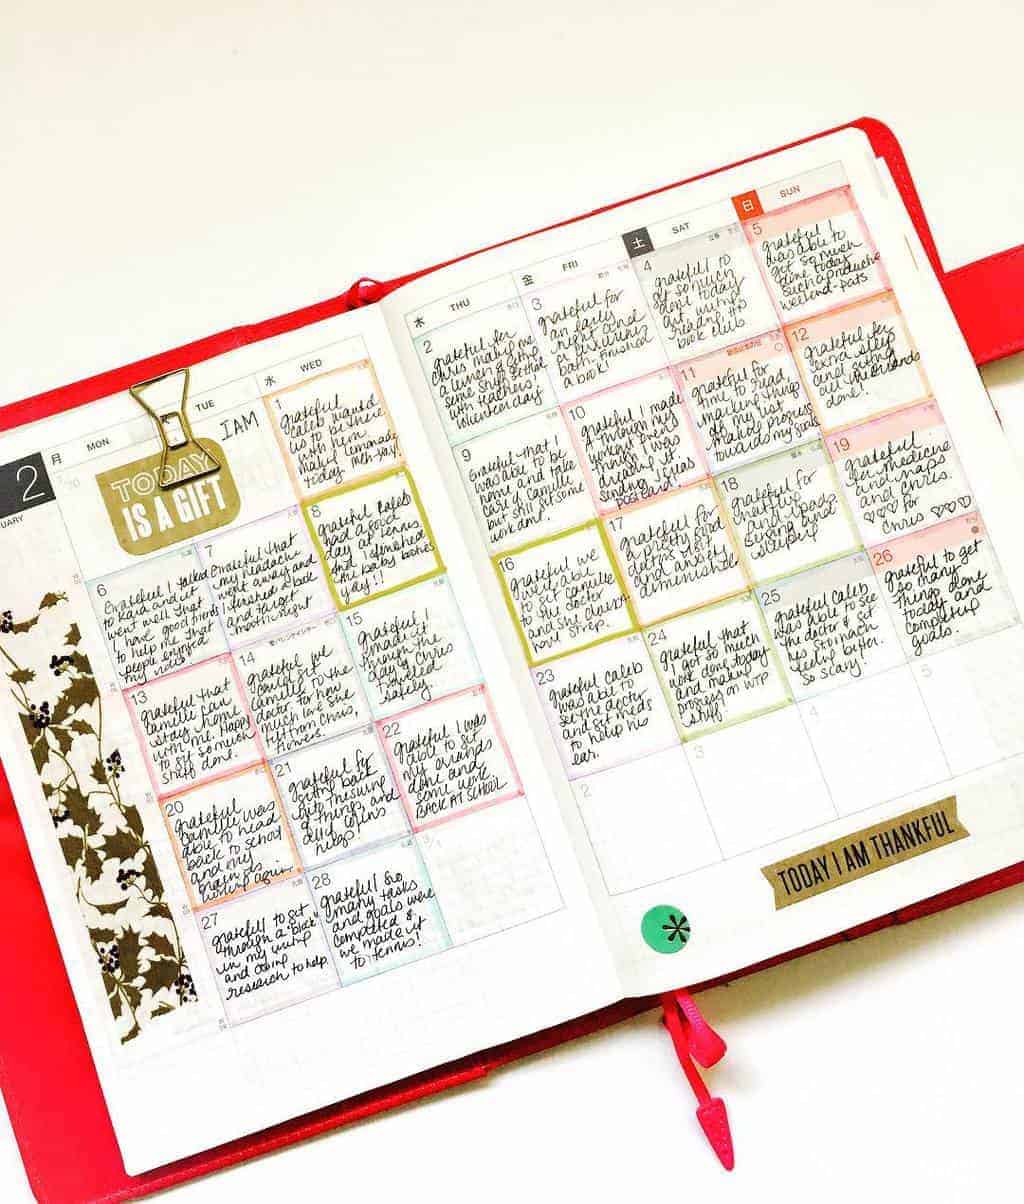 2
UARY
月 MON
TUE
水 WED
木 THU
金 FRI
土 SAT
日 SUN
TODAY
IS A GIFT
I AM
1
grateful
Caleb wanted
us to be there
with him.
made lemonade
today
2
grateful for
Chris making me
a lemon & getting
some stuff setting
with teachers!
winter day
3
grateful for
an early
night and
a relaxing
bath, finished
a book!
4
grateful to
get so much
done today
get writing
reading, its
book club
5
grateful I
was able to
get so much
done today
such a productive
weekend
6
Grateful I talked
to Kara and it
went well that
I have good friends
to help me that
people enjoyed
my video.
7
grateful that
my headache
went away and
I finished a book
and target
8
grateful Kaleb
had a good
day at tennis
that I finished
the baby
yay!!
9
grateful that I
was able to be
home and take
care of Camille
but still get some
work done.
10
grateful I made
through many
things even
though I was
dreading it
postcard!
11
grateful for
time to read
marking things
off my list
make progress
towards my goals
12
grateful for
extra sleep
and getting
all
done!
13
grateful that
Camille can
stay home
with me. Happy
to get so much
stuff done.
14
grateful we
could get
Camille to the
doctor to how
much love she
from Chris,
flowers.
15
grateful I
made it
through the
day, Chris
traveled
safely.
16
grateful we
were able
to get Camille
to the doctor
and she doesn't
have strep.
17
grateful for
a pretty good
doctor's
and anxiety
diminished
18
grateful for
and ipads.
sleep!
19
grateful
for medicine
and naps
and Chris.
♡♡♡ for
Chris ♡♡♡
20
grateful
Camille was
able to head
back to school
and my
brain is
working again.
21
grateful for
getting back
into the swing
of things, and
all Chris
help!
22
grateful I was
able to get
my errands
done and
some work
BACK AT SCHOOL
23
grateful Caleb
was able to
see the doctor
and get meds
to help his
ear.
24
grateful that
I got so much
work done today
and making
progress on WTP
stuff
25
grateful Caleb
was able to see
the doctor & get
his stomach
feeling better.
So scary!
26
grateful to get
so many
things done
today and
completed
goals.
27
grateful to get
through a "block"
in my writing
and doing
research to help.
28
grateful! So
many tasks
and goals were
completed &
we made it
to tennis!
2
3
4
5
TODAY I AM THANKFUL
*